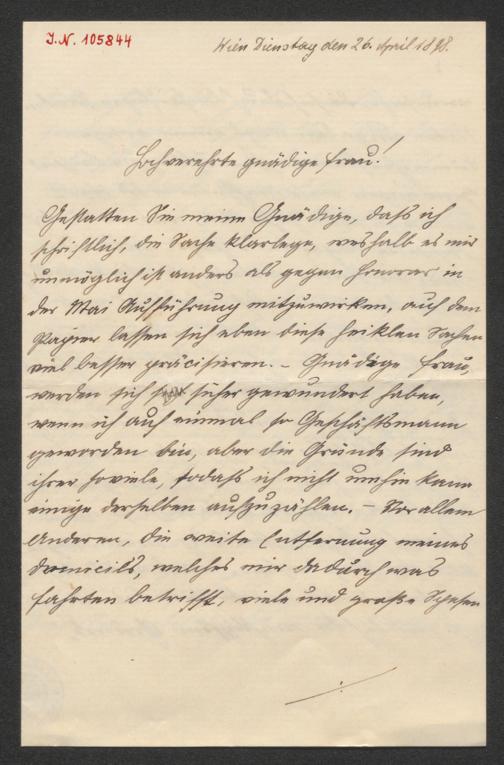 J.N. 105844
Wien Dienstag den 26. April 1898.
Hochverehrte gnädige Frau!
Gestatten Sie meine Gnädige, dass ich
schriftlich, die Sache klarlege, weshalb es mir
unmöglich ist anders als gegen Honorar in
der Mai Aufführung mitzuwirken, auf dem
Papier lassen sich eben diese heiklen Sachen
viel besser präcisieren. – Gnädige Frau,
werden sich sicher gewundert haben,
wenn ich auf einmal so Geschäftsmann
geworden bin, aber die Gründe sind
ihrer soviele, sodass ich nicht umhin kann
einige derselben aufzuzählen. – Vor allem
Anderen, die weite Entfernung meines
Domicils, welches mir dadurch was
Fahrten betrifft, viele und große Spesen
./.